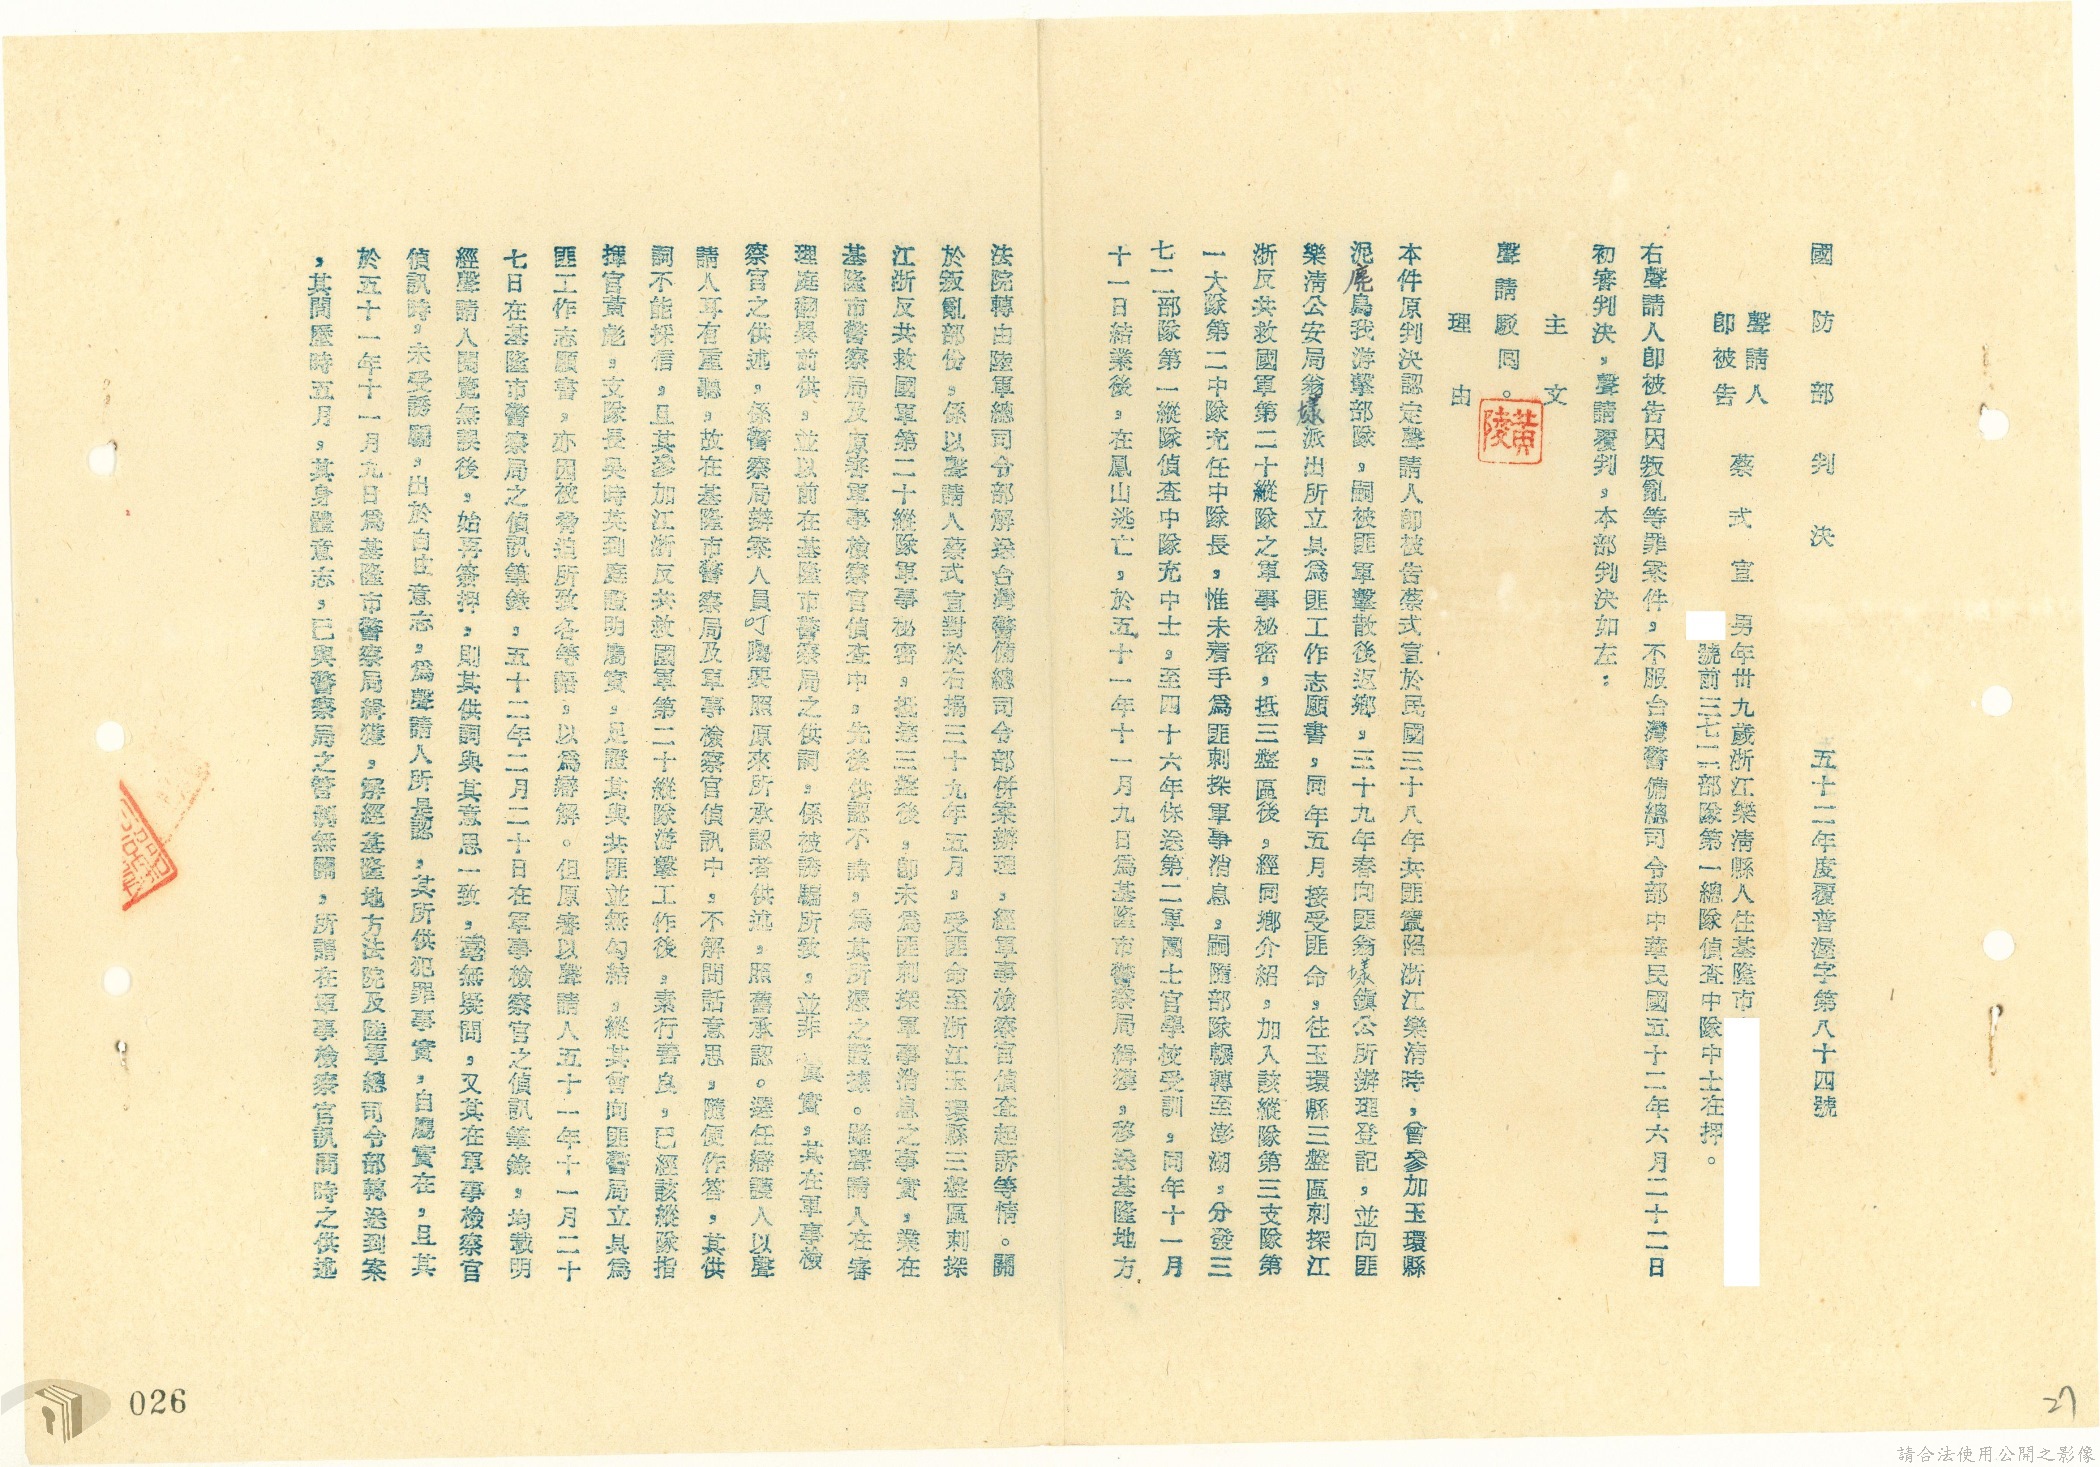 國防部判決　五十二年度覆普溼字第八十四號
聲請人
即被告　蔡式宣　男年卅九歲浙江樂清縣人住基隆市
號前三七二二部隊第一總隊偵查中隊中士在押。
右聲請人即被告因叛亂等罪案件，不服台灣警備總司令部中華民國五十二年六月二十二日
初審判決，聲請覆判，本部判決如左：
主文
聲請駁囘。
黃陵
理由
本件原判決認定聲請人即被告蔡式宣於民國三十八年共匪竄陷浙江樂清時，曾參加玉環縣
泥鹿島我游擊部隊，嗣被匪軍擊散後返鄉，三十九年春向匪翁垟鎮公所辦理登記，並向匪
樂清公安局翁垟派出所立具爲匪工作志願書，同年五月接受匪命，往玉環縣三盤區刺探江
浙反共救國軍第二十縱隊之軍事秘密，抵三盤區後，經同鄉介紹，加入該縱隊第三支隊第
一大隊第二中隊充任中隊長，惟未着手爲匪刺探軍事消息，嗣隨部隊輾轉至澎湖，分發三
七二二部隊第一縱隊偵查中隊充中士，至四十六年保送第二軍團士官學校受訓，同年十一月
十一日結業後，在鳳山逃亡，於五十一年十一月九日爲基隆市警察局緝獲，移送基隆地方
法院轉由陸軍總司令部解送台灣警備總司令部併案辦理，經軍事檢察官偵查起訴等情。關
於叛亂部份，係以聲請人蔡式宣對於右揭三十九年五月，受匪命至浙江玉環縣三盤區刺探
江浙反共救國軍第二十縱隊軍事秘密，抵達三盤後，即未爲匪刺探軍事消息之事實，業在
基隆市警察局及原審軍事檢察官偵查中，先後供認不諱，爲其所憑之證據。雖聲請人在審
理庭翻異前供，並以前在基隆市警察局之供詞，係被誘騙所致，並非眞實，其在軍事檢
察官之供述，係警察局辦案人員叮囑要照原來所承認者供述，照舊承認。選任辯護人以聲
請人耳有重聽，故在基隆市警察局及軍事檢察官偵訊中，不解問話意思，隨便作答，其供
詞不能採信，且其參加江浙反共救國軍第二十縱隊游擊工作後，素行善良，已經該縱隊指
揮官黃彪，支隊長吳時英到庭證明屬實，足證其與共匪並無勾結，縱其曾向匪警局立具爲
匪工作志願書，亦因被脅迫所致各等語，以爲辯解。但原審以聲請人五十一年十一月二十
七日在基隆市警察局之偵訊筆錄，五十二年二月二十日在軍事檢察官之偵訊筆錄，均載明
經聲請人閱覽無誤後，始再簽押，則其供詞與其意思一致，毫無疑問，又其在軍事檢察官
偵訊時，未受誘騙，出於自由意志，爲聲請人所是認，其所供犯罪事實，自屬實在，且其
於五十一年十一月九日爲基隆市警察局緝獲，解經基隆地方法院及陸軍總司令部轉送到案
，其間歷時五月，其身體意志，已與警察局之管轄無關，所謂在軍事檢察官訊問時之供述
026
27
請合法使用公開之影像